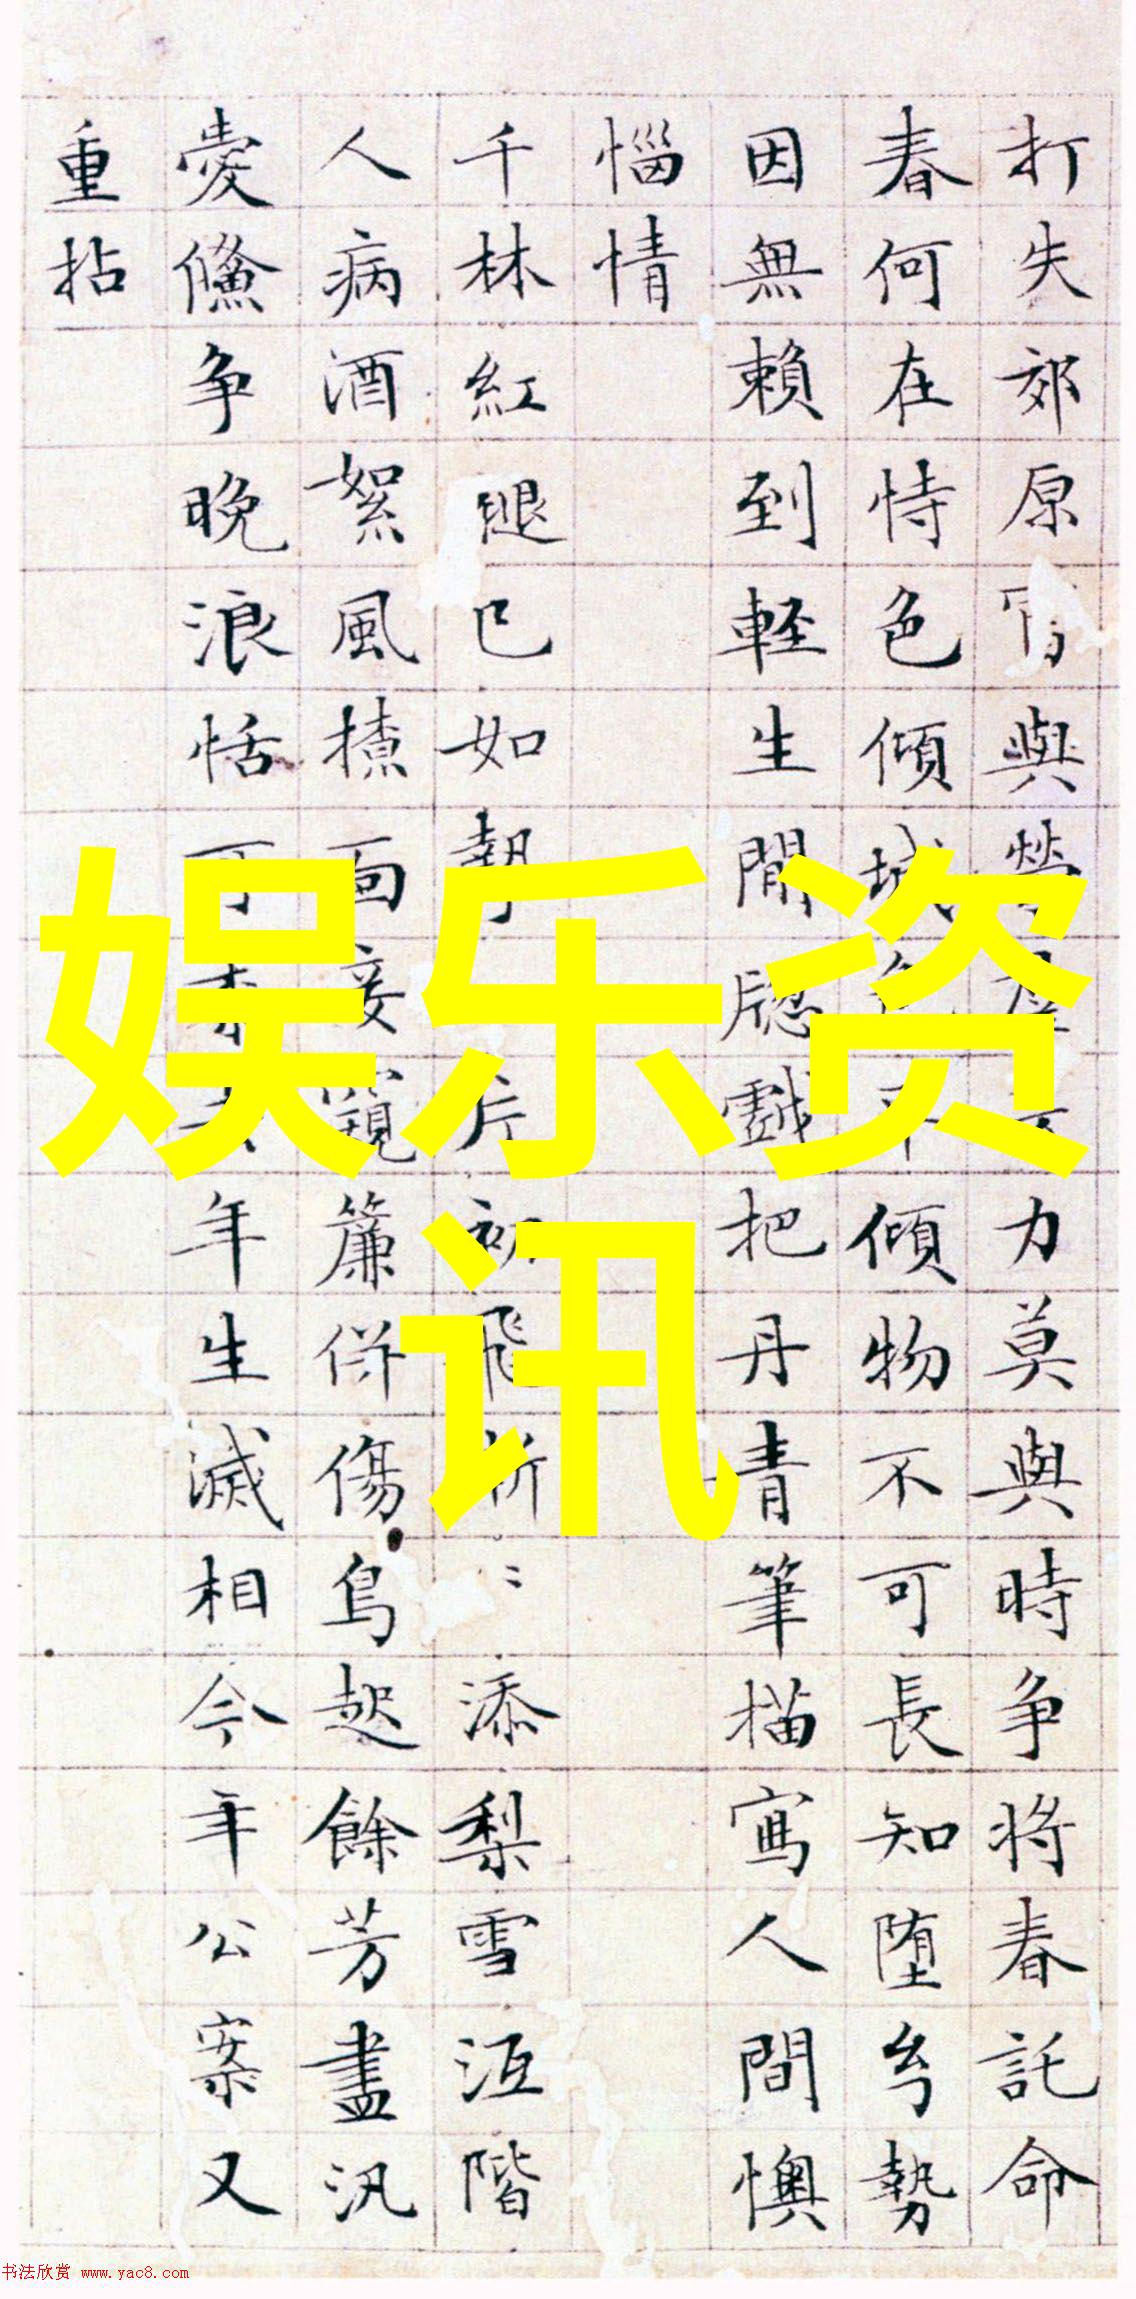 打失郊原與力莫與時争將春託命
春何在恃色傾城傾物不可長知堕勢
因無賴到軽生間牕戲把丹青筆描寫人間懊
惱情
千林紅腿已如片初飛添梨雪沍階
人病酒絮風面窺簾併傷鳥起餘芳盡汎
愛争晚浪恬年生滅相今年公案又
重拈
娱乐资
讯
书法欣赏 www.yac8.com